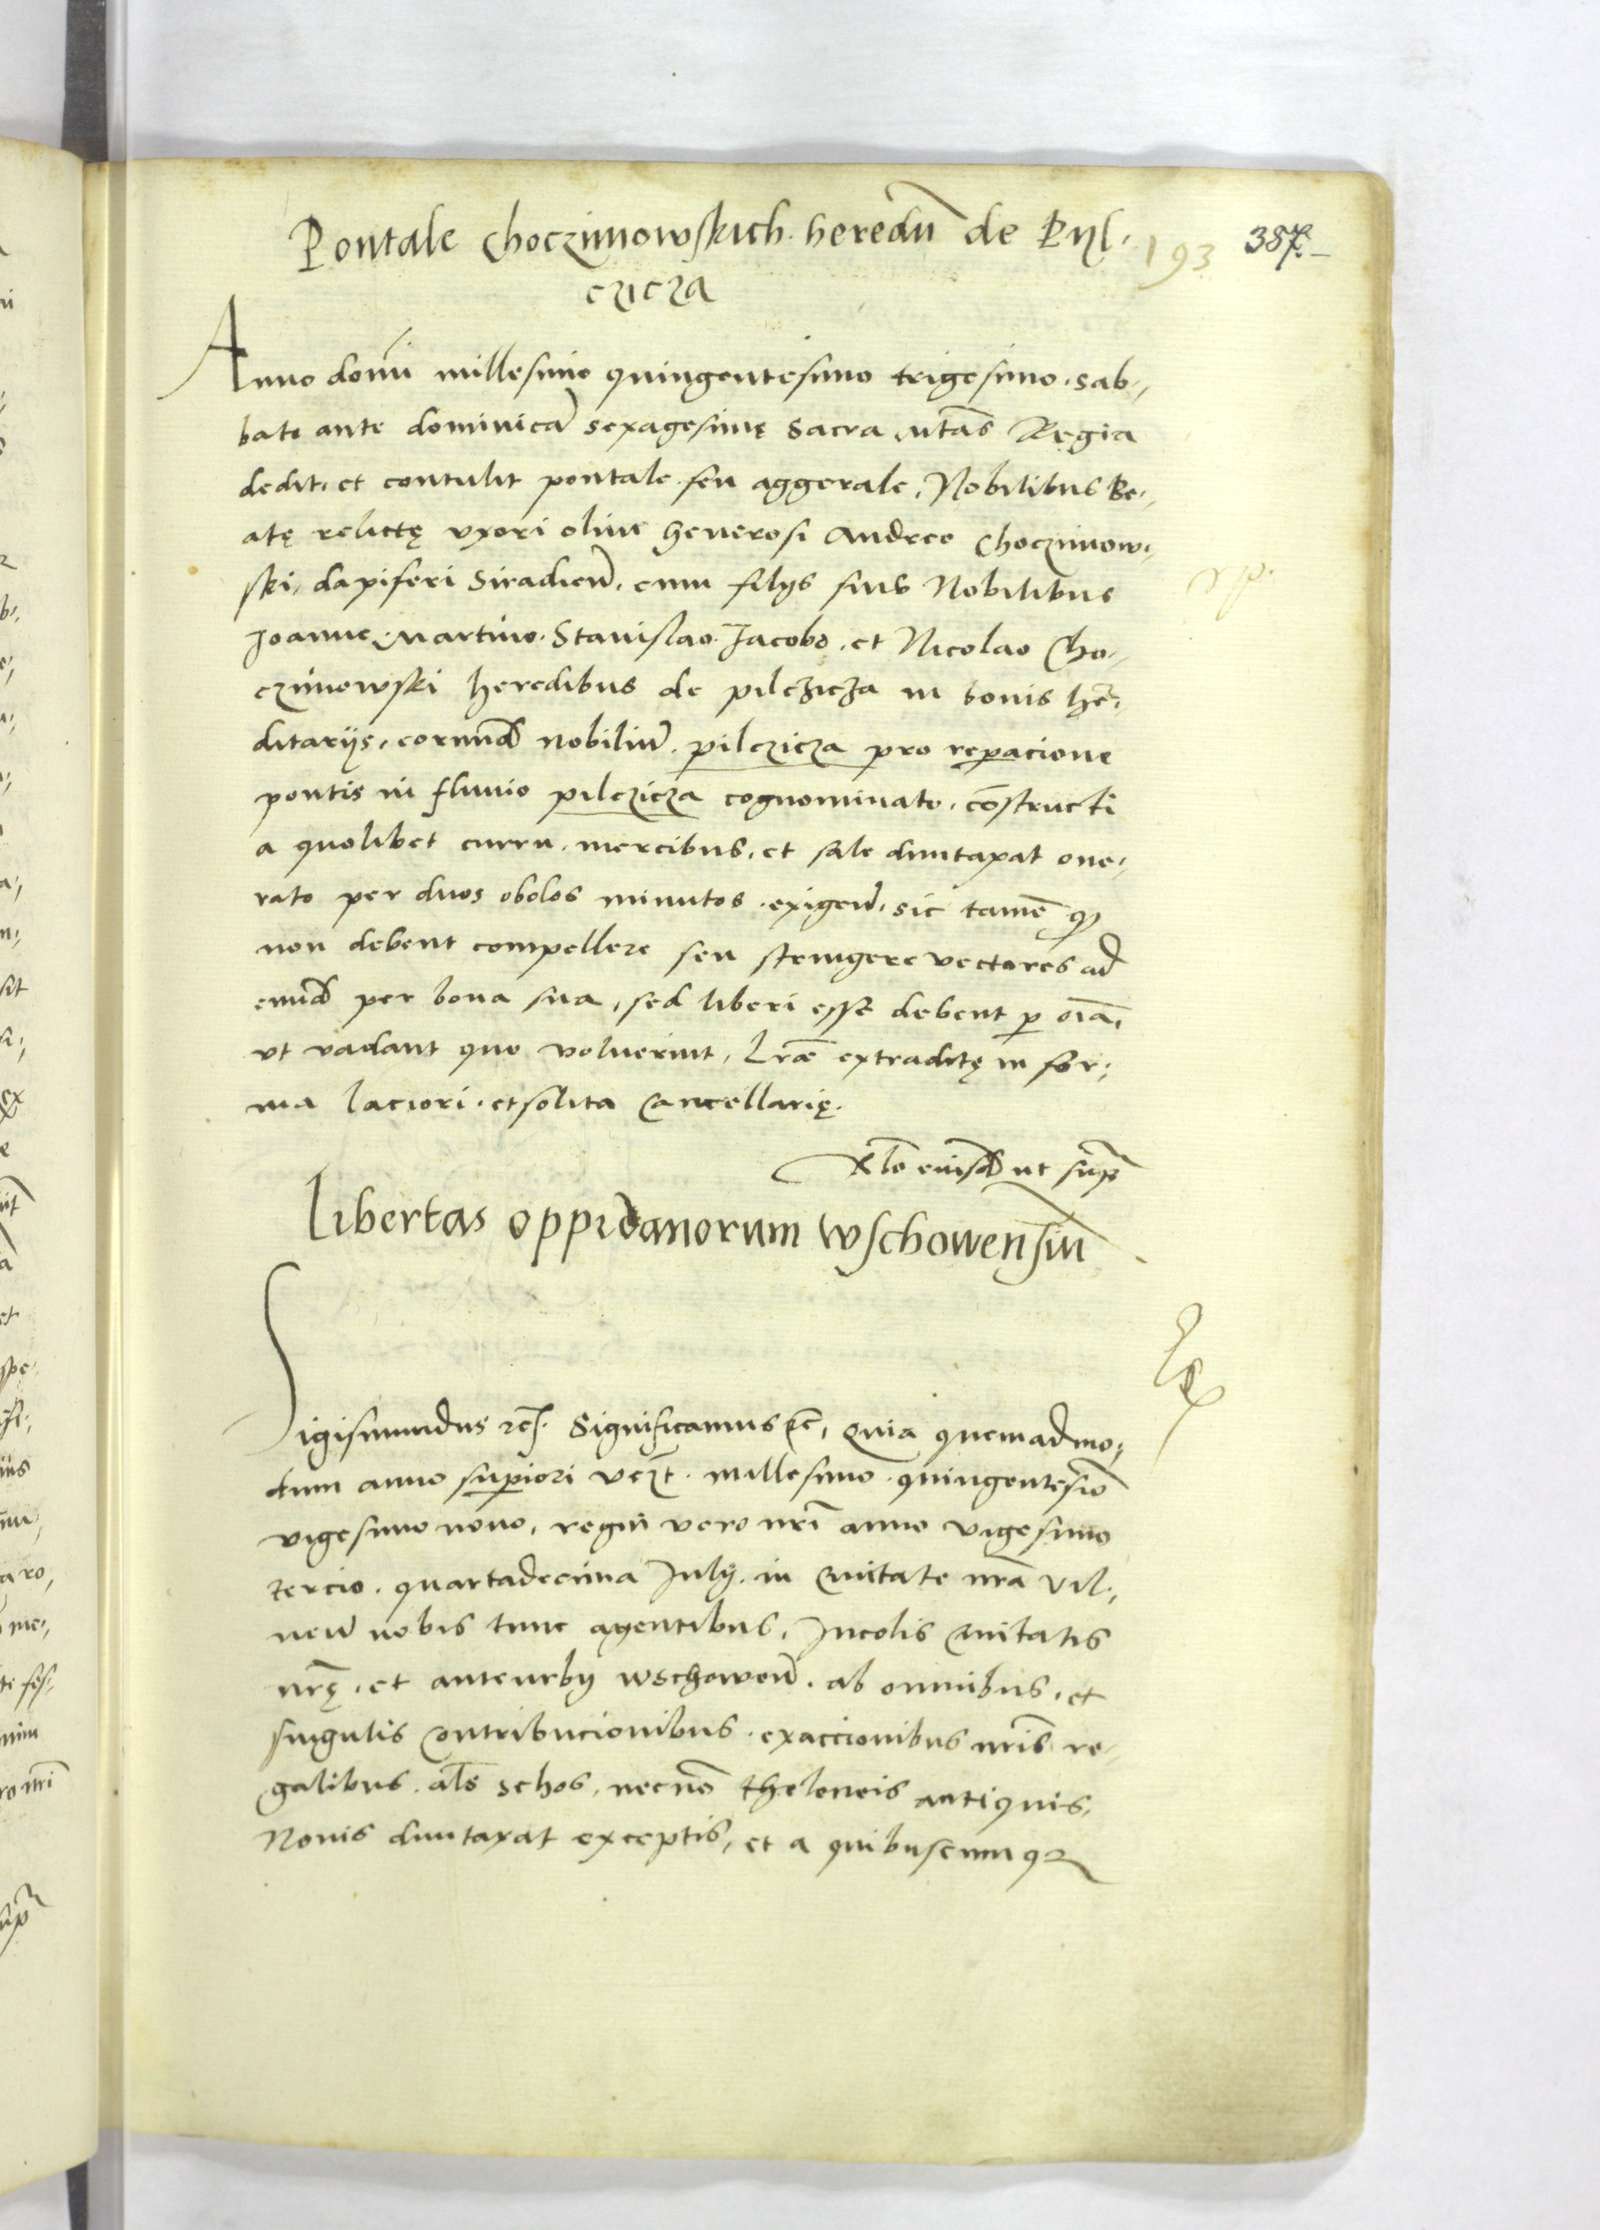 Pontale Choczimowskich heredū de Pyl,
193 387.
czicza
Anno domi millesimo quingentesimo trigesimo. sab,
bato ante dominicā sexagesimę Sacra Mtas Regia
dedit, et contulit pontale seu aggerale, Nobilibus Be,
atę relictę vxori olim Generosi Andreo Choczimow,
ski, dapiferi Siradieñ. cum filijs suis Nobilibus
Joanne, Martino. Stanislao. Jacobo. et Nicolao Cho,
czimowski heredibus de pilczicza in bonis hē,
ditarijs, eorund nobiliū. pilczicza pro repacione
pontis in fluuio pilczicza cognominato, cōstructi
a quolibet curru, mercibus, et sale duntaxat one,
rato per duos obolos minutos. exigeñ. sic tamē q
non debent compellere seu stringere vectores ad
eund per bona sua, sed liberi esse debent p oīa,
vt vadant quo voluerint, Lrae extraditę in for,
ma laciori. et solita Cancellarię.
Rlo eiusd ut supr
Libertas oppidanorum wschowensiū
Sigismundus rcs. Significamus etc, Quia quemadmo,
dum anno supiori vczt. millesimo. quingentesio
vigesimo nono, regni vero nri anno vigesimo
tercio. quartadecima Julij. in Ciuitate nrā vil,
neñ nobis tunc agentibus, Incolis Ciuitatis
nrę, et anteurbij wschoweñ. ab omnibus, et
singulis Contribucionibus. exaccionibus nris re,
galibus. als schos. necnō theloneis antiquis,
Nouis duntaxat exceptis, et a quibuscumq